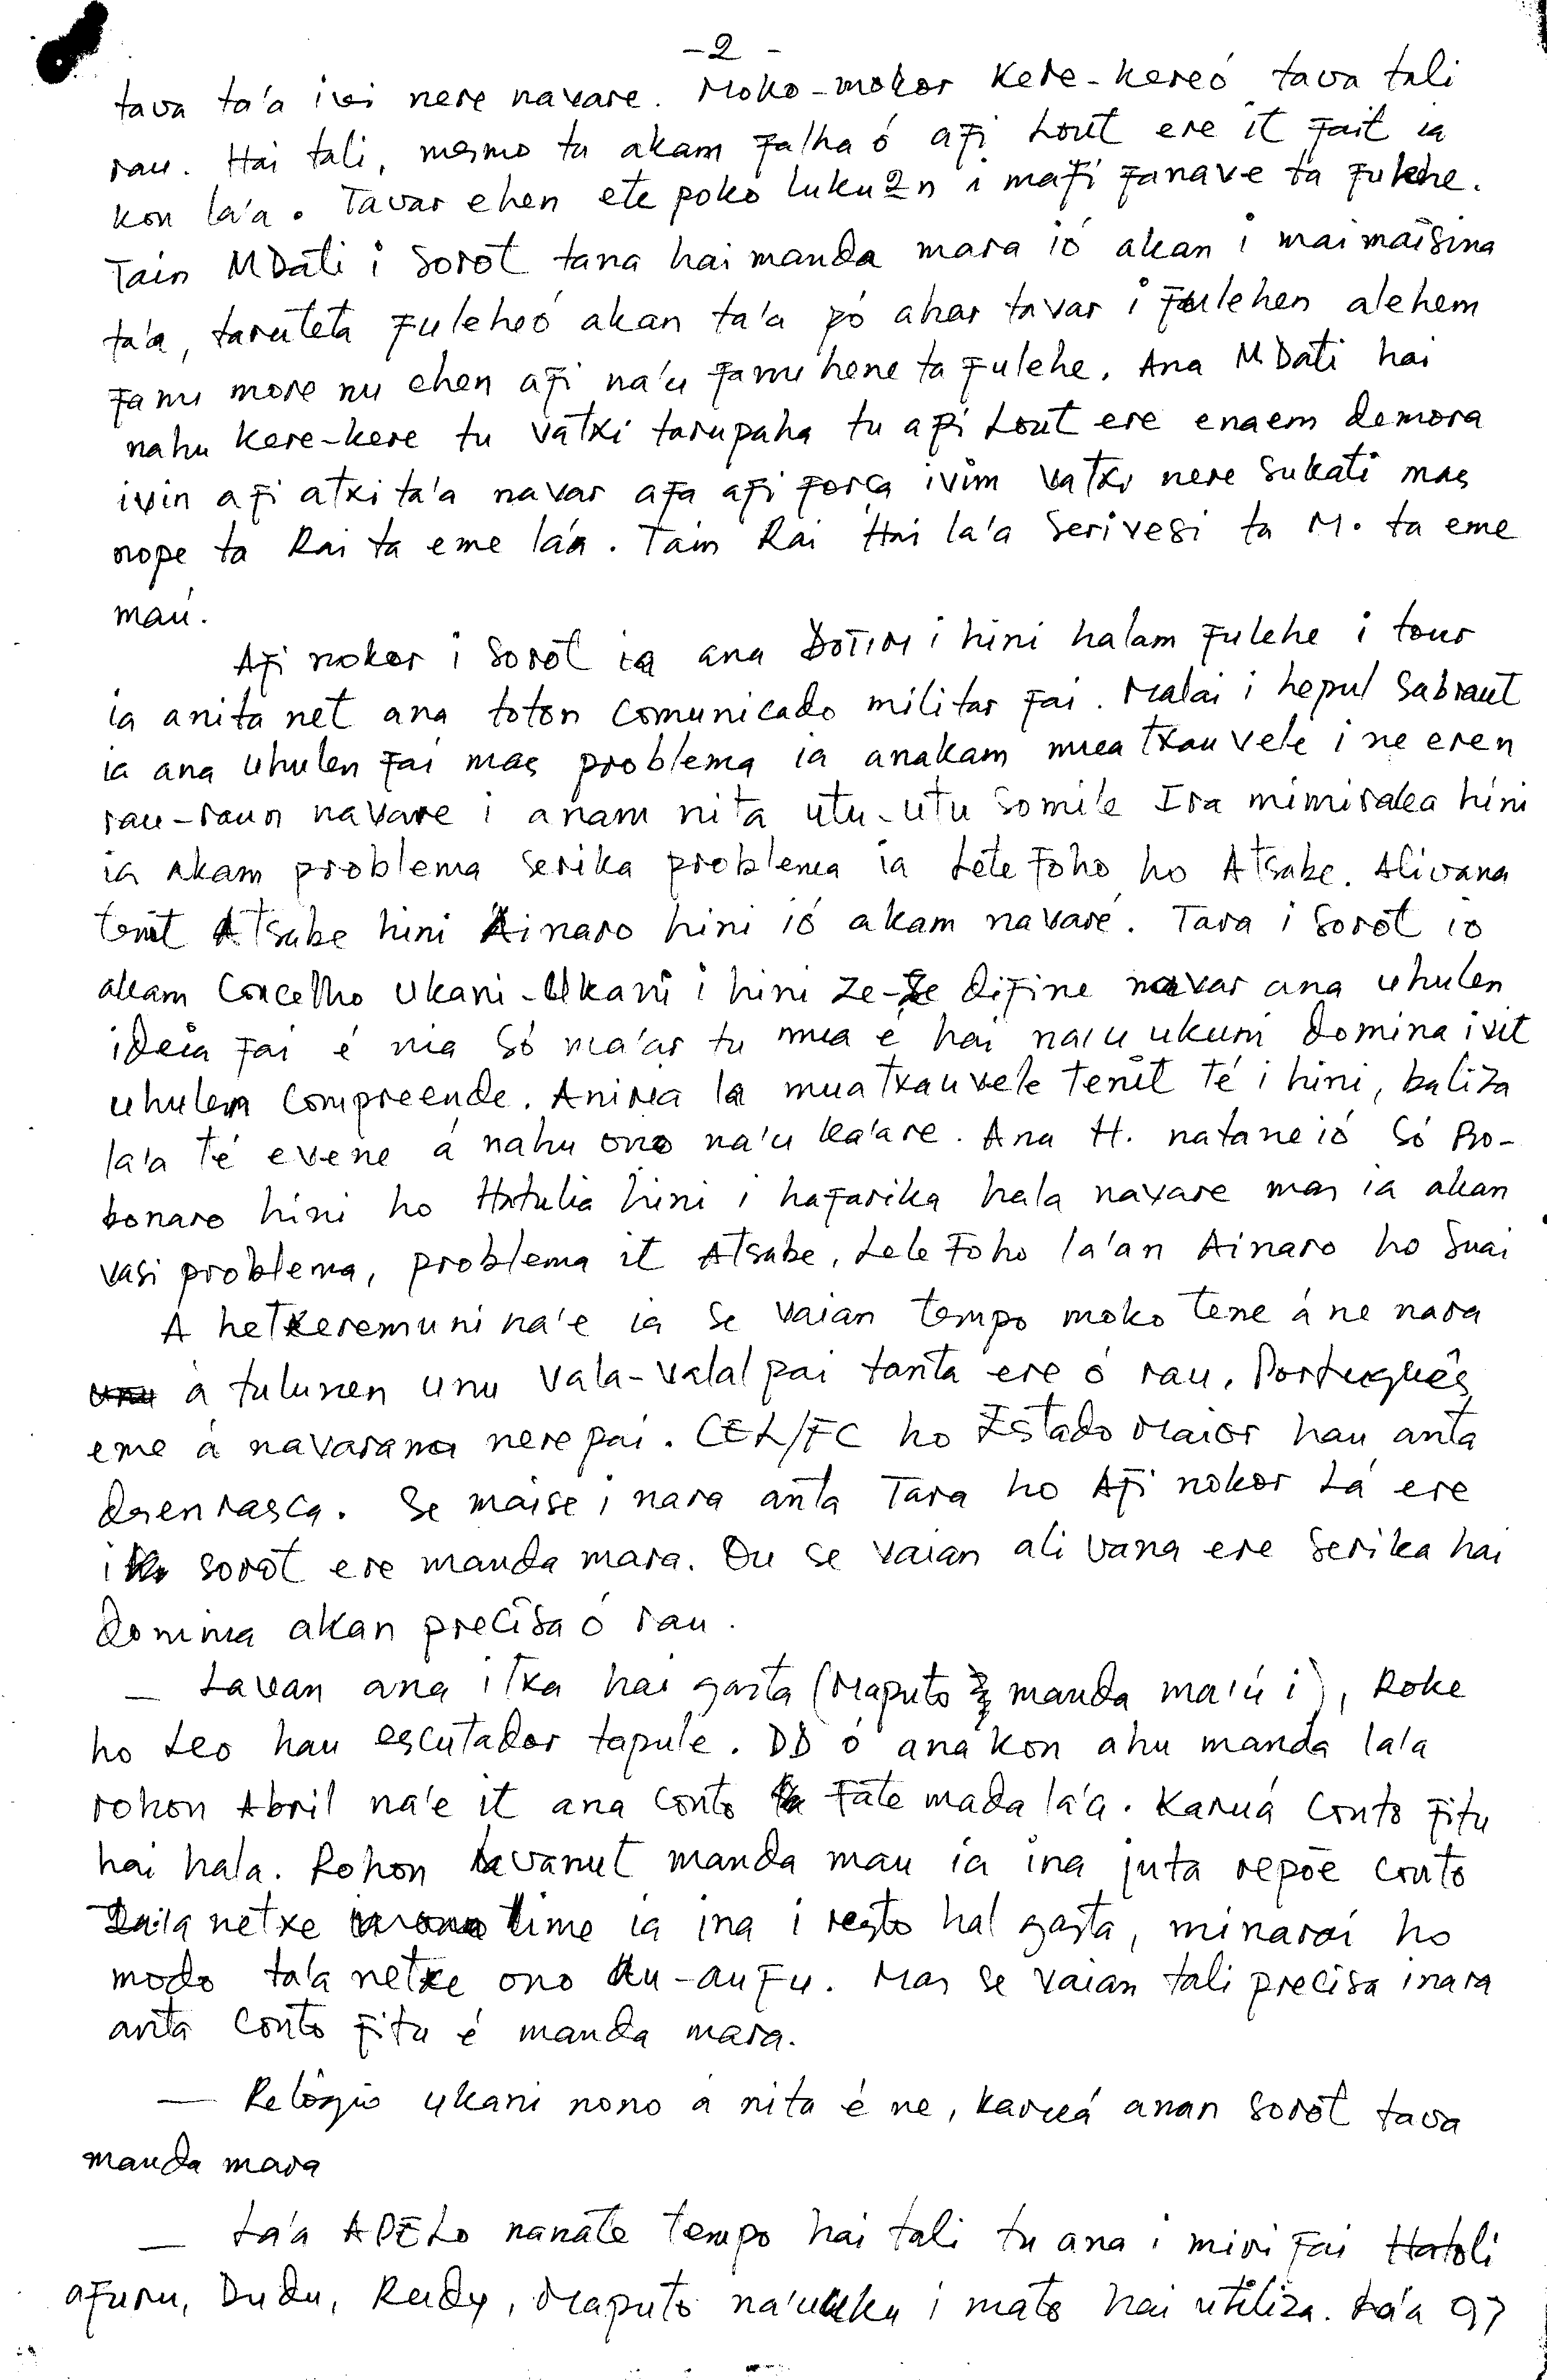 -2-
tava ta'a ivi nere navare. Moko-mokor Kere-kereó tava tali
rau. Hai tali, mesmo tu akam falha ó afi Lout ere it fait ia
kon la'a. Tavar ehen ete poko luku2n i mafi fanave ta fulehe.
Tain MDati i Sorot tana hai manda mara ió akan i mai maisina
ta'a, taruteta fuleheó akan ta'a pó ahar tavar i fulehen alehem
fanu more nu ehen afi na'u fanu hene ta fulehe. Ana MDati hai
nahu Kere-kere tu vatxi tarupaha tu afi Lout ere enaem demora
ivin afi atxi ta'a navar afa afi força ivim vatxi nere sukati mas
nope ta Rai ta eme lá'a. Tain Rai Hai la'a serivesi ta M. ta eme
maú.
Afi nokor i Sorot ia ana DOTIM i hini halam fulehe i tour
ia anita net ana toton comunicado militar fai. Malai i hepul Sabraut
ia ana uhulen fai mas problema ia anakam mua txauvele i ne eren
rau-raun navare i anam nita utu-utu somile Ira mimiraka hini
ia akam problema serika problema ia Lete Foho ho Atsabe. Alivana
tenit Atsabe hini Ainaro hini ió akam navaré. Tara i Sorot io
akam Concelho Ukani-Ukani i hini ze-ze difine navar ana uhulen
ideia fai é nia só ma'ar tu mua e hai na'u ukuni domina ivit
uhulem compreende. Anirea la muatxauvele tenit té i hini, baliza
la'a té evene á nahu ono na'u ka'are. Ana H. natane ió só Bo-
bonaro hini ho Hatulia hini i hafarika hala navare mas ia akan
vasi problema, problema it Atsabe, Lete Foho la'an Ainaro ho Suai
A hetkeremuni na'e ia se vaian tempo moko tene á ne nara
á tulunen unu vala-valal pai tanta ere ó rau, Português
eme á navarana nere pai. CEL/FC ho Estado Maior hau anta
desenrasca. Se maise i nara anta Tara ho Afi nokor Lá ere
i sorot ere manda mara. Ou se vaian ali vana ere serika hai
domina akan precisa ó rau.
— Lavan ana itxa hai gasta (Maputo manda ma'ú i), Roke
ho Leo hau escutador tapule. DD ó ana kon ahu manda la'a
rohon Abril na'e it ana conto Fate mada lá'a. Karuá conto fitu
hai hala. Rohon lavanut manda mau ia ina juta repõe conto
netxe lime ia ina i resto hal gasta, minarai ho
modo ta'a netxe ono Au-aufu. Mas se vaian tali precisa inara
anta conto fitu é manda mara.
— Relógio ukani nono á nita é ne, karuá anan sorot tava
manda mara
— La'a APELo nanate tempo hai tali tu ana i miri fai Hatoli
afuru, Dudu, Rudy, Maputo na'u i mato hai utiliza. Lá'a 97